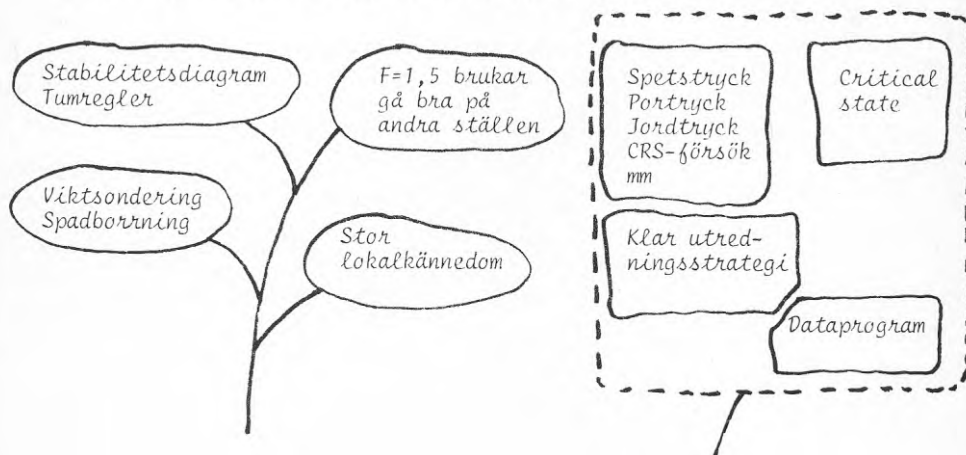 Stabilitetsdiagram
Tumregler
F=1,5 brukar
gå bra på
andra ställen
Viktsondering
Spadborrning
Stor
lokalkännedom
Spetstryck
Portryck
Jordtryck
CRS-försök
mm
Critical
state
Klar utred-
ningsstrategi
Dataprogram